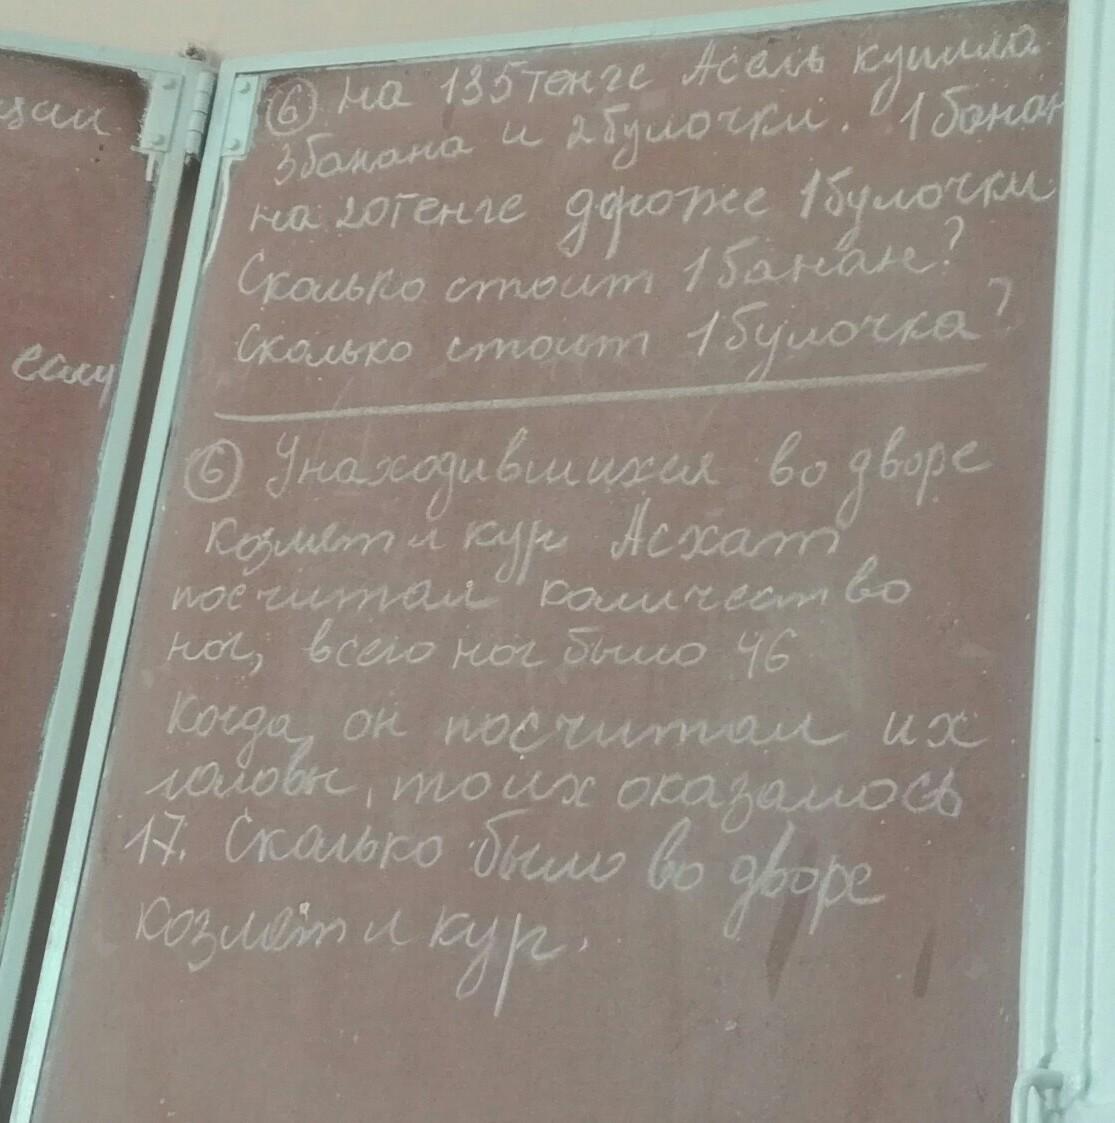 ции
если
⑥ На 135 тенге Асель купила
3 банана и 2 булочки. 1 банан
на 20 тенге дороже 1 булочки
Сколько стоит 1 банан?
Сколько стоит 1 булочка?
⑥ У находившихся во дворе
козлят и кур Асхат
посчитал количество
ног, всего ног было 46
Когда он посчитал их
головы, то их оказалось
17. Сколько было во дворе
козлят и кур.